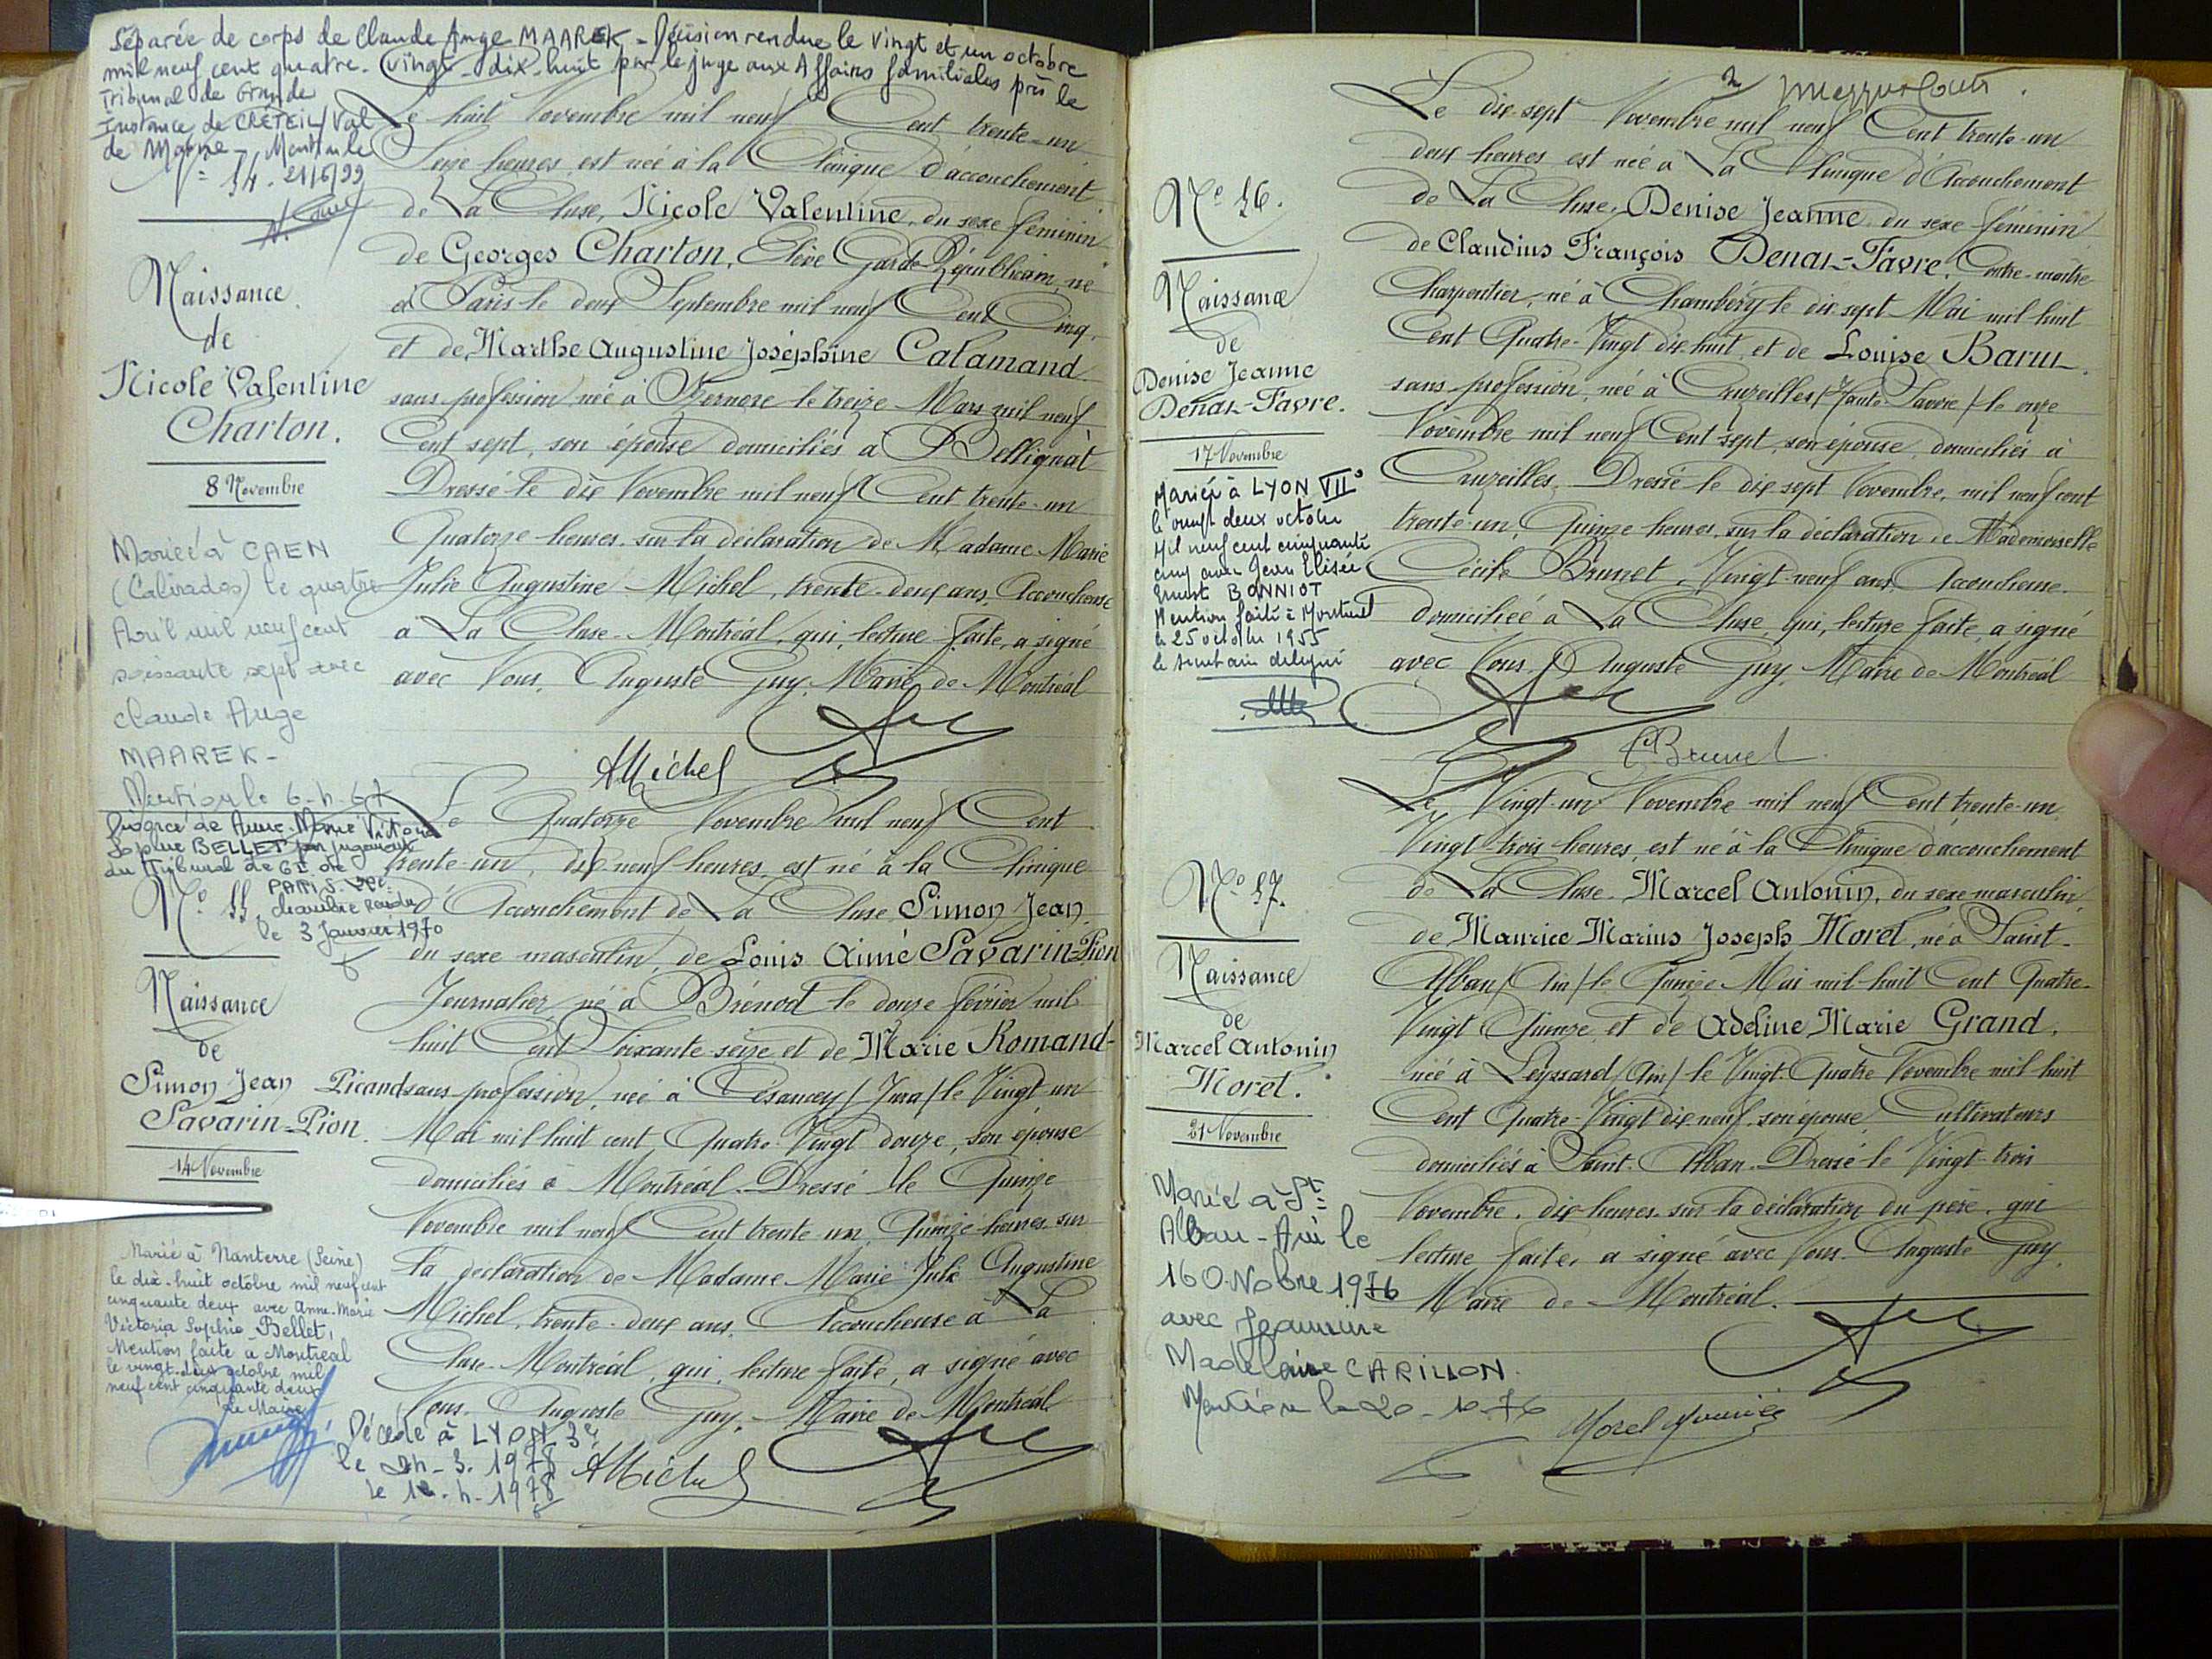 Séparée de corps de Claude Ange MAAREK - Décision rendue le vingt et un octobre
mil neuf cent quatre-vingt-dix-huit par le juge aux Affaires familiales près le
Tribunal de Grande
Instance de CRETEIL/Val
de Marne - Mention le
21/6/99
Naissance
de
Nicole Valentine
Charton.
8 Novembre
Mariée à CAEN
(Calvados) le quatre
Avril mil neuf cent
soixante sept avec
Claude Ange
MAAREK -
Mention le 6-4-67
Le huit Novembre mil neuf Cent trente-un
Seize heures, est née à la Clinique d'accouchement
de La Cluse, Nicole Valentine, du sexe féminin
de Georges Charton, Elève Garde Républicain, né
à Paris le deux Septembre mil neuf Cent Cinq,
et de Marthe Augustine Joséphine Catamand
sans profession née à Bernore le treize Mars mil neuf
Cent sept, son épouse domiciliés à Bellignat
Dressé le dix Novembre mil neuf Cent trente-un
Quatorze heures, sur la déclaration de Madame Marie
Julie Augustine Michel, trente-deux ans, Accoucheuse
à La Cluse-Montréal, qui, lecture faite, a signé
avec Nous, Auguste Guy, Maire de Montréal
AMichel
Divorcé de Anne-Marie Victoria
Sophie BELLET par jugement
du Tribunal de GI de
PARIS
chambre rendu
le 3 Janvier 1970
No 55.
Naissance
de
Simon Jean
Savarin-Pion.
14 Novembre
Marié à Nanterre (Seine)
le dix-huit octobre mil neuf cent
cinquante deux avec Anne-Marie
Victoria Sophie Bellet,
Mention faite à Montréal
le vingt-deux octobre mil
neuf cent cinquante deux
Le Maire
Le Quatorze Novembre mil neuf Cent
trente-un, dix neuf heures, est né à la Clinique
d'Accouchement de La Cluse, Simon Jean,
du sexe masculin, de Louis Aimé Savarin-Pion
Journalier, né à Brénod le douze février mil
huit Cent Soixante seize et de Marie Romand-
Picand sans profession, née à Césancey/Jura/le Vingt-un
Mai mil huit cent Quatre-Vingt douze, son épouse
domiciliés à Montréal. Dressé le Quinze
Novembre mil neuf Cent trente un, Quinze heures, sur
la déclaration de Madame Marie Julie Augustine
Michel, trente-deux ans, Accoucheuse à La
Cluse-Montréal, qui, lecture faite, a signé avec
Nous, Auguste Guy, Maire de Montréal
Décédé à LYON 3e
le 24-3-1978
AMichel
No 56.
Naissance
de
Denise Jeanne
Denar-Favre.
17 Novembre
Mariée à LYON VIIe
le vingt deux octobre
Mil neuf cent cinquante
cinq avec Jean Elisée
Ernest BONNIOT
Mention faite à Montréal
le 25 octobre 1955
le secrétaire délégué
Le dix-sept Novembre mil neuf Cent trente-un
deux heures est née à La Clinique d'Accouchement
de La Cluse, Denise Jeanne, du sexe féminin
de Claudius François Denar-Favre, Contre-maître
Charpentier, né à Chambéry le dix-sept Mai mil huit
Cent Quatre-Vingt dix-huit, et de Louise Barut,
sans profession, née à Cruzeilles/Haute-Savoie/le onze
Novembre mil neuf Cent sept, son épouse, domiciliés à
Cruzeilles. Dressé le dix sept Novembre, mil neuf cent
trente-un, Quinze heures, sur la déclaration de Mademoiselle
Cécile Brunet, Vingt-neuf ans, Accoucheuse.
domiciliée à La Cluse, qui, lecture faite, a signé
avec Nous, Auguste Guy, Maire de Montréal
CBrunet
No 57.
Naissance
de
Marcel Antonin
Morel.
21 Novembre
Marié à St
Alban-Ain le
16 Octobre 1976
avec Jeannine
Madelaine CARILLON.
Mention le 20-10-76
Le Vingt-un Novembre mil neuf Cent trente-un
Vingt-trois heures, est né à la Clinique d'accouchement
de La Cluse, Marcel Antonin, du sexe masculin,
de Maurice Marius Joseph Morel, né à Saint-
Alban/Ain/le Quinze Mai mil-huit Cent Quatre-
Vingt Quinze, et de Adeline Marie Grand,
née à Leyssard/Ain/le Vingt-Quatre Novembre mil huit
Cent Quatre-Vingt dix neuf, son épouse, Cultivateurs
domiciliés à Saint-Alban. Dressé le Vingt-trois
Novembre, dix heures, sur la déclaration du père, qui
lecture faite, a signé avec Nous, Auguste Guy,
Maire de Montréal.
Morel Maurice